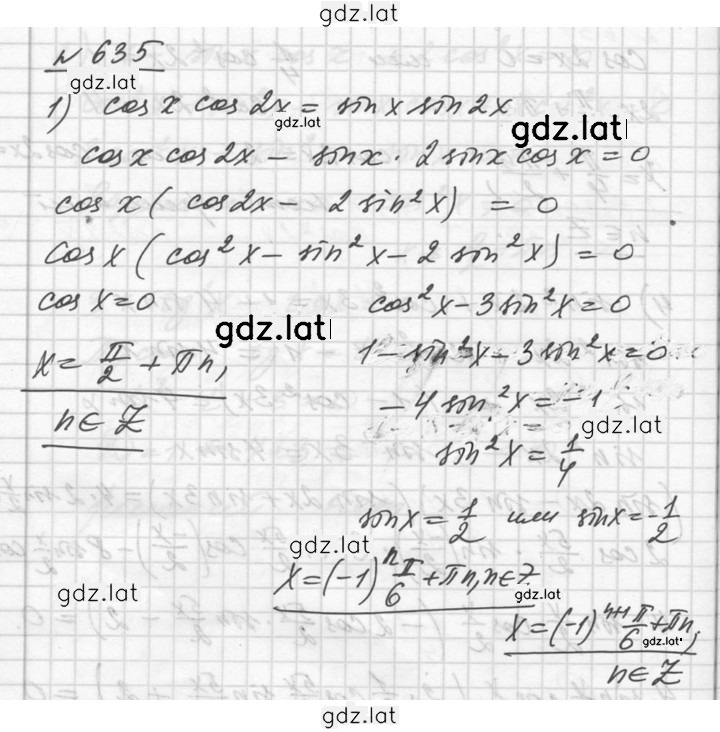 gdz.lat
№ 635
gdz.lat
1) cos x cos 2x = sin x sin 2x
gdz.lat
gdz.lat
cos x cos 2x − sin x · 2 sin x cos x = 0
cos x ( cos 2x − 2 sin² x ) = 0
cos x ( cos² x − sin² x − 2 sin² x ) = 0
cos x = 0 cos² x − 3 sin² x = 0
gdz.lat
x = π/2 + πn, 1 − sin² x − 3 sin² x = 0
n ∈ Z − 4 sin² x = −1
gdz.lat
sin² x = 1/4
sin x = 1/2 или sin x = −1/2
gdz.lat
x = (−1)ⁿ π/6 + πn, n ∈ Z
gdz.lat
x = (−1)ⁿ⁺¹ π/6 + πn,
gdz.lat
n ∈ Z
gdz.lat